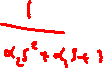 1
α₂s² + α₁s + 1